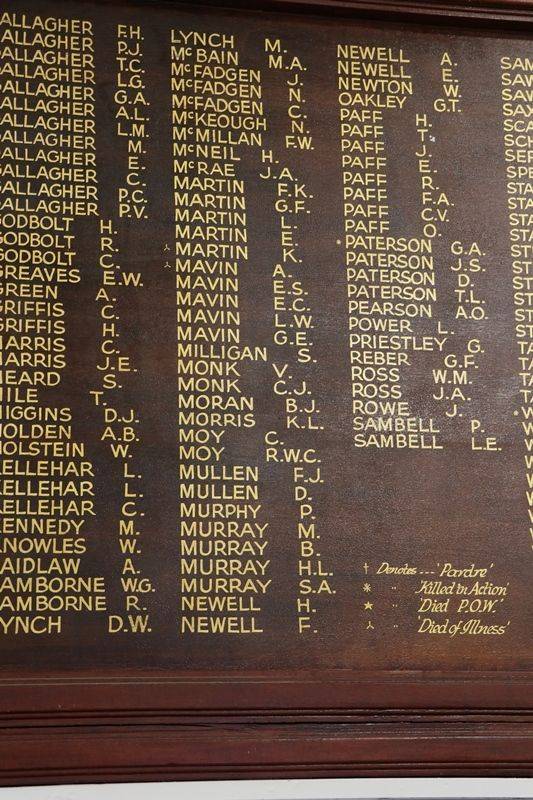 ALLAGHER F.H.
ALLAGHER P.J.
ALLAGHER T.C.
ALLAGHER L.G.
ALLAGHER G.A.
ALLAGHER A.L.
ALLAGHER L.M.
ALLAGHER M.
ALLAGHER E.
ALLAGHER C.
ALLAGHER P.C.
ALLAGHER P.V.
GODBOLT H.
GODBOLT R.
GODBOLT C.
GREAVES E.W.
GREEN A.
GRIFFIS C.
GRIFFIS H.
HARRIS C.
HARRIS J.E.
HEARD S.
HILE T.
HIGGINS D.J.
HOLDEN A.B.
HOLSTEIN W.
KELLEHAR L.
KELLEHAR L.
KELLEHAR C.
KENNEDY M.
KNOWLES W.
LAIDLAW A.
LAMBORNE W.G.
LAMBORNE R.
LYNCH D.W.
LYNCH M.
McBAIN M.A.
McFADGEN J.
McFADGEN N.
McFADGEN C.
McKEOUGH N.
McMILLAN F.W.
McNEIL H.
McRAE J.A.
MARTIN F.K.
MARTIN G.F.
MARTIN L.
MARTIN E.
⅄ MARTIN K.
⅄ MAVIN A.
MAVIN E.S.
MAVIN E.C.
MAVIN L.W.
MAVIN G.E.
MILLIGAN S.
MONK V.
MONK C.J.
MORAN B.J.
MORRIS K.L.
MOY C.
MOY R.W.C.
MULLEN F.J.
MULLEN D.
MURPHY P.
MURRAY M.
MURRAY B.
MURRAY H.L.
MURRAY S.A.
NEWELL H.
NEWELL F.
NEWELL A.
NEWELL E.
NEWTON W.
OAKLEY G.T.
PAFF H.
PAFF T.
PAFF J.
PAFF E.
PAFF R.
PAFF F.A.
PAFF C.V.
PAFF O.
* PATERSON G.A.
PATERSON J.S.
PATERSON D.
PATERSON T.L.
PEARSON A.O.
POWER L.
PRIESTLEY G.
REBER G.F.
ROSS W.M.
ROSS J.A.
ROWE J.
SAMBELL P.
SAMBELL L.E.
† Denotes --- 'Pardre'
* " 'Killed in Action'
★ " 'Died P.O.W.'
⅄ " 'Died of Illness'